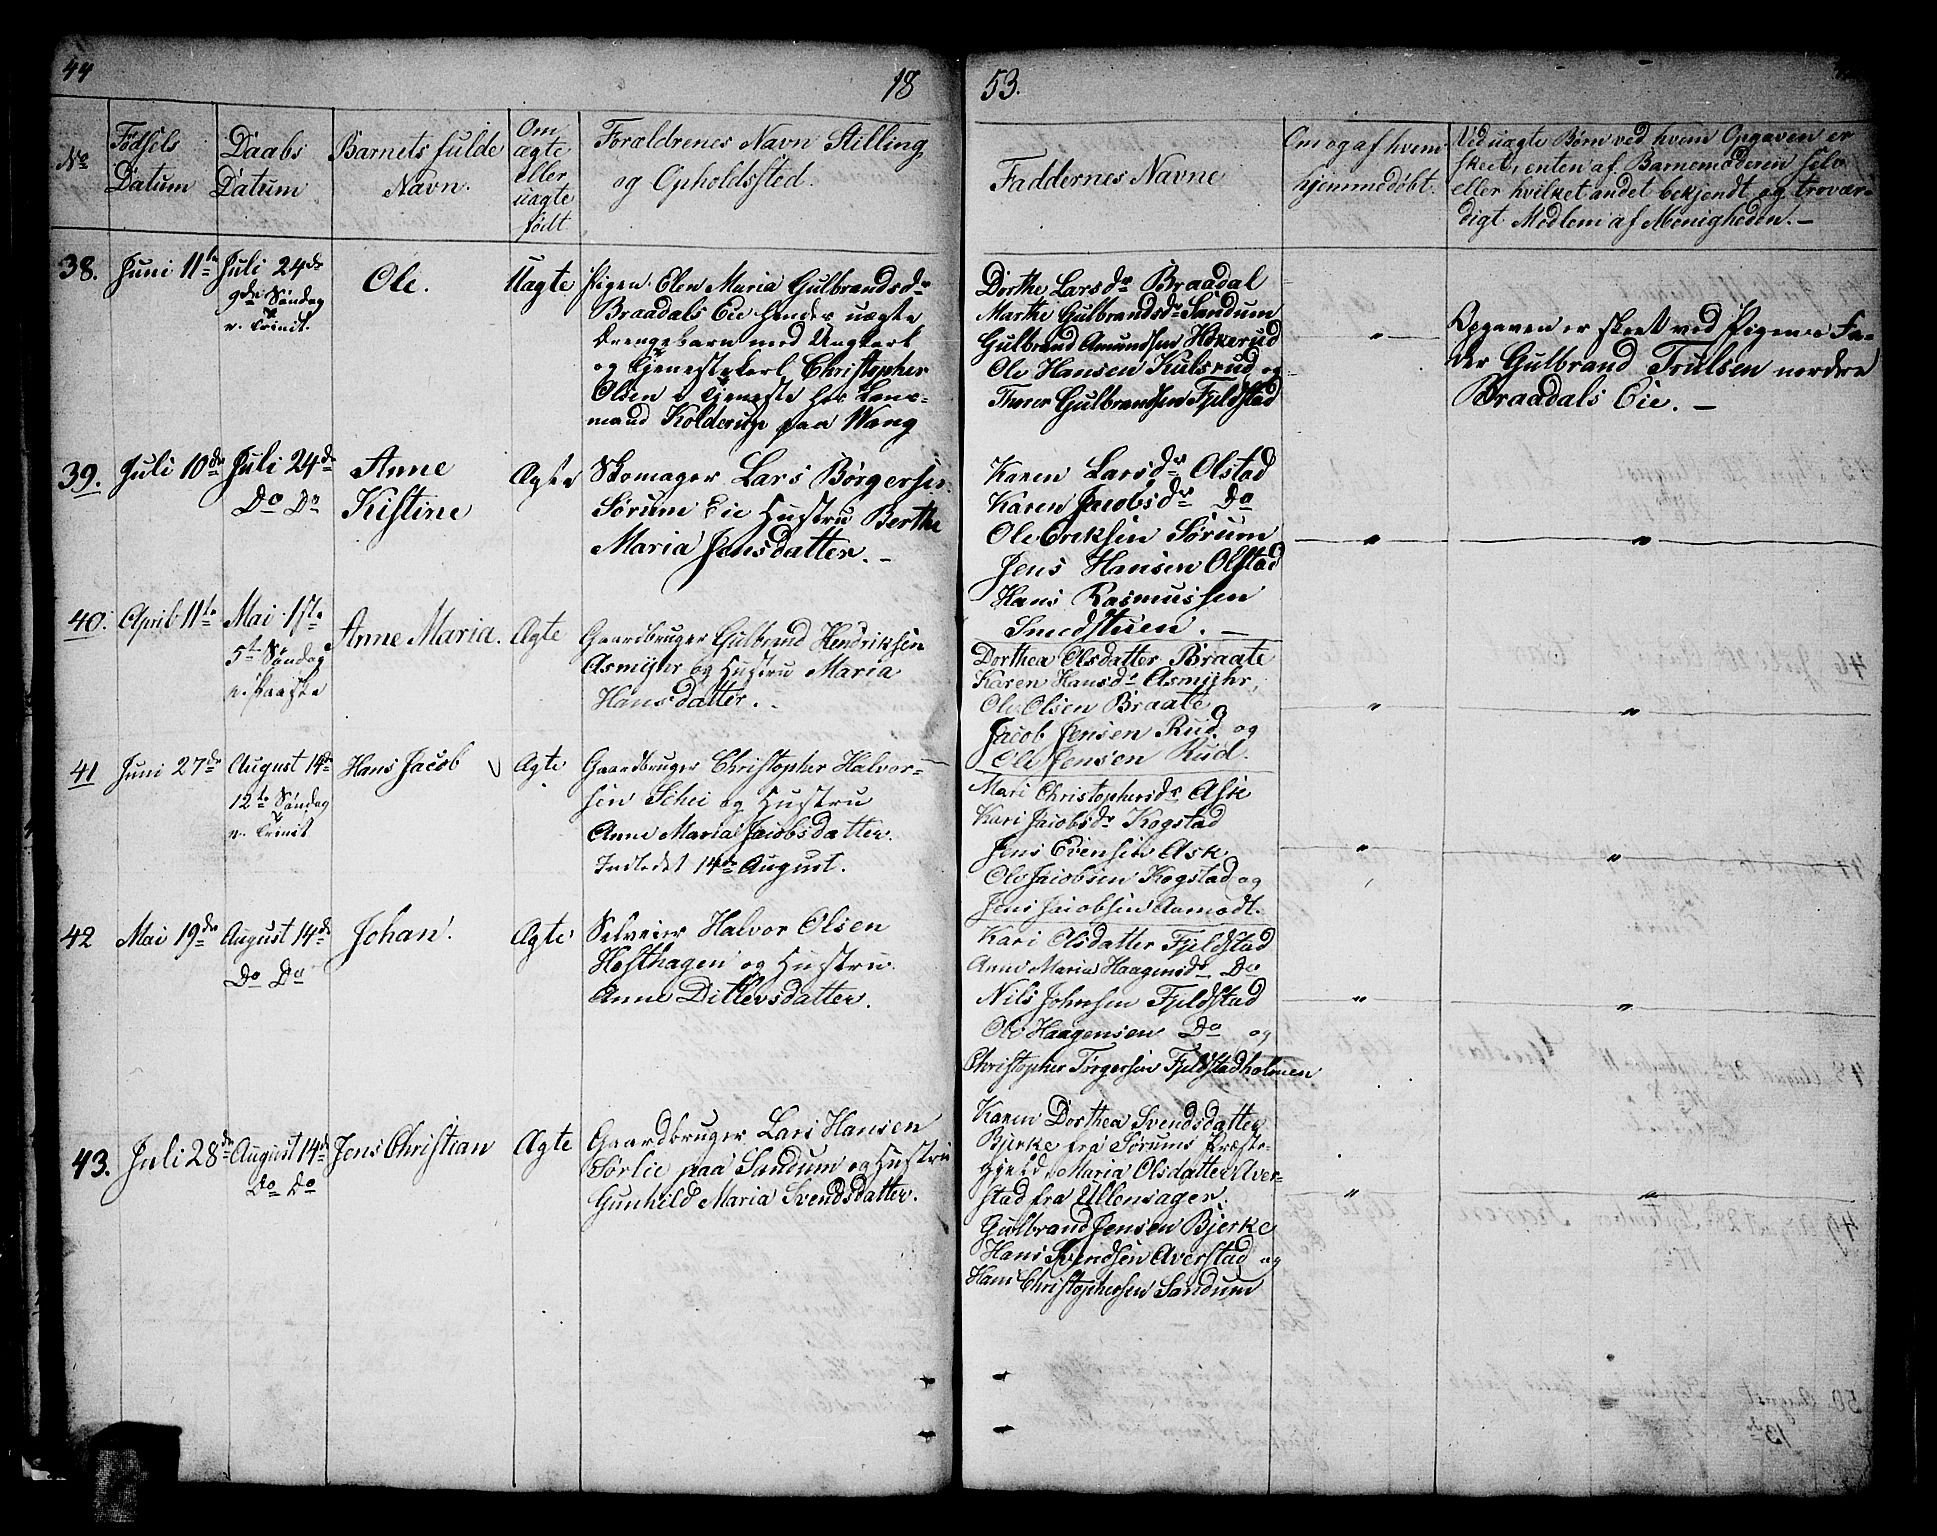 44
18
53.
No
Fødsels
Datum
Daabs
Datum
Barnets fulde
Navn.
Om
ægte
eller
uægte
født
Forældrenes Navn Stilling
og Opholdssted.
Faddernes Navne
Om og af hvem
hjemmedøbt.
Ved uægte Børn ved hvem Opgaven er
skeet, enten af Barnemoderen selv
eller hvilket andet bekjendt og trovær-
digt Medlem af Menigheden. –
38.
Juni 11te
Juli 24de
9de Søndag
e. Trinit.
Ole.
Uægte
Pigen Elen Maria Gulbrandsdr
Braadals Eie hendes uægte
Drengebarn med Ungkarl
og Tjenestekarl Christopher
Olsen i Tjeneste hos Lens-
mand Kolderup paa Wang
Dorthe Larsdr Braadal
Marthe Gulbrandsdr Sandum
Gulbrand Amundsen Hokerud
Ole Hansen Kulsrud og
Thorer Gulbrandsen Fjeldstad
"
Opgaven er skeet ved Pigens Fa-
der Gulbrand Trulsen nordre
Braadals Eie. –
39.
Juli 10de
Juli 24de
Do Do
Anne
Kistine
Ægte
Skomager Lars Børgersen
Sørum Eie Hustru Berthe
Maria Jensdatter. –
Karen Larsdr Olstad
Karen Jacobsdr Do
Ole Eriksen Sørum
Jens Hansen Olstad
Hans Rasmussen
Smedstuen. –
"
"
40.
April 11te
Mai 1ste
5te Søndag
e. Paaske
Anne Maria.
Ægte
Gaardbruger Gulbrand Hendriksen
Asmyhr og Hustru Maria
Hansdatter.
Dorthea Olsdatter Braate
Karen Hansdr Asmyhr,
Ole Olsen Braate
Jacob Jensen Rud, og
Ole Jensen Rud.
"
"
41
Juni 27de
August 14de
12te Søndag
e. Trinit
Hans Jacob
Ægte
Gaardbruger Christopher Halvor-
sen Schei og Hustru
Anne Maria Jacobsdatter.
Indledet 14de August.
Mari Christophersdr Ask
Kari Jacobsdr Kogstad
Jens Evensen Ask
Ole Jacobsen Kogstad og
Jens Jacobsen Aamodt.
"
"
42
Mai 19de
August 14de
Do Do
Johan.
Ægte
Selveier Halvor Olsen
Hesthagen og Hustru
Anne Ditlevsdatter.
Kari Olsdatter Fjeldstad
Anne Maria Haagensdr Do
Nils Johnsen Fjeldstad
Ole Haagensen Do og
Christopher Torgersen Fjeldstadholmen
"
"
43.
Juli 28de
August 14de
Do Do
Jens Christian
Ægte
Gaardbruger Lars Hansen
Sørlie paa Sandum og Hustru
Gunhild Maria Svendsdatter.
Karen Dorthea Svendsdatter
Bjerke fra Sørums Præste-
gjeld, Maria Olsdatter Aver-
stad fra Ullensager.
Gulbrand Jensen Bjerke
Hans Svendsen Averstad og
Hans Christophersen Sandum
"
"